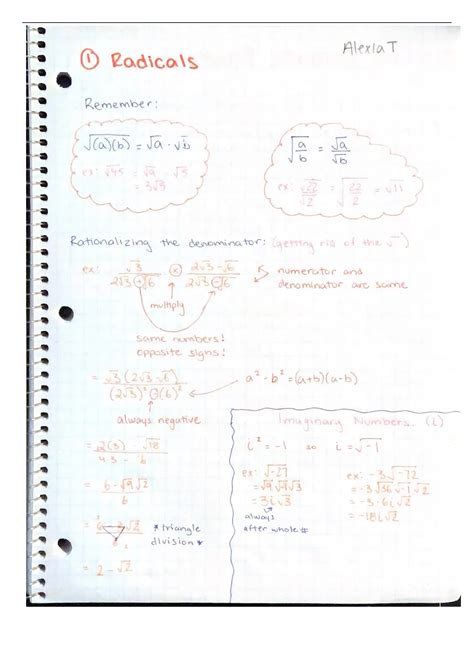 Alexia T
① Radicals
Remember:
√(a)(b) = √a · √b
√a/b = √a/√b
ex: √45 = √9 · √5
= 3√5
ex: √22/√2 = √22/2 = √11
Rationalizing the denominator: (getting rid of the √ )
ex: √3/(2√3 + √6) ⊗ (2√3 - √6)/(2√3 - √6)
numerator and
denominator are same
multiply
same numbers!
opposite signs!
= √3 (2√3 - √6)/((2√3)² ⊖ (√6)²)
a² - b² = (a+b)(a-b)
always negative
= (2(3) - √18)/(4·3 - 6)
= (6 - √9√2)/6
*triangle
division*
= 2 - √2
Imaginary Numbers. (i)
i² = -1 so i = √-1
ex: √-27
= √9 √-1 √3
= 3i√3
always
after whole #
ex: -3√-72
= -3√36 √-1 √2
= -3·6i√2
= -18i√2